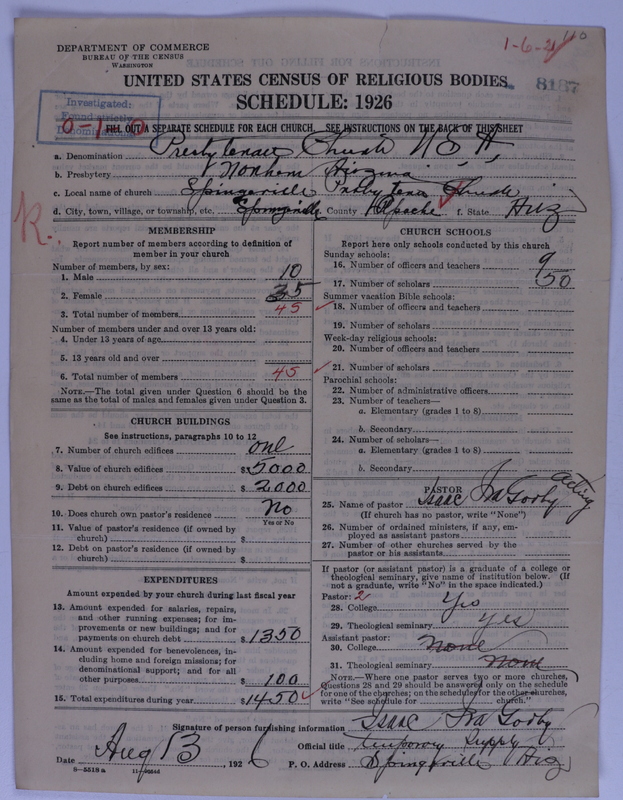 1-6-21
110
DEPARTMENT OF COMMERCE
BUREAU OF THE CENSUS
WASHINGTON
UNITED STATES CENSUS OF RELIGIOUS BODIES
8187
SCHEDULE: 1926
Investigated:
Found strictly
Denominational
0-1-0
FILL OUT A SEPARATE SCHEDULE FOR EACH CHURCH. SEE INSTRUCTIONS ON THE BACK OF THIS SHEET
a. Denomination Presbyterian Church U.S.A.
b. Presbytery Northern Arizona
c. Local name of church Springerville Presbyterian Church
d. City, town, village, or township, etc. Springerville County Apache f. State Ariz
R.
MEMBERSHIP
Report number of members according to definition of
member in your church
Number of members, by sex:
1. Male 10
2. Female 35
3. Total number of members 45
Number of members under and over 13 years old:
4. Under 13 years of age
5. 13 years old and over
6. Total number of members 45
NOTE.—The total given under Question 6 should be
the same as the total of males and females given under Question 3.
CHURCH BUILDINGS
See instructions, paragraphs 10 to 12
7. Number of church edifices one
8. Value of church edifices $5000
9. Debt on church edifices $2000
10. Does church own pastor's residence No
Yes or No
11. Value of pastor's residence (if owned by
church) $
12. Debt on pastor's residence (if owned by
church) $
EXPENDITURES
Amount expended by your church during last fiscal year
13. Amount expended for salaries, repairs,
and other running expenses; for im-
provements or new buildings; and for
payments on church debt $1350
14. Amount expended for benevolences, in-
cluding home and foreign missions; for
denominational support; and for all
other purposes $100
15. Total expenditures during year $1450
CHURCH SCHOOLS
Report here only schools conducted by this church
Sunday schools:
16. Number of officers and teachers 9
17. Number of scholars 50
Summer vacation Bible schools:
18. Number of officers and teachers
19. Number of scholars
Week-day religious schools:
20. Number of officers and teachers
21. Number of scholars
Parochial schools:
22. Number of administrative officers
23. Number of teachers—
a. Elementary (grades 1 to 8)
b. Secondary
24. Number of scholars—
a. Elementary (grades 1 to 8)
b. Secondary
PASTOR
25. Name of pastor Isaac Ira Gorby acting
(If church has no pastor, write "None")
26. Number of ordained ministers, if any, em-
ployed as assistant pastors
27. Number of other churches served by the
pastor or his assistants
If pastor (or assistant pastor) is a graduate of a college or
theological seminary, give name of institution below. (If
not a graduate, write "No" in the space indicated.)
Pastor: 2
28. College Yes
29. Theological seminary Yes
Assistant pastor:
30. College None
31. Theological seminary None
NOTE.—Where one pastor serves two or more churches,
Questions 28 and 29 should be answered only on the schedule
for one of the churches; on the schedule for the other churches,
write "See schedule for church."
Signature of person furnishing information Isaac Ira Gorby
Official title Temporary Supply
Date Aug 13, 1926 P. O. Address Springerville Ariz
8—5518a